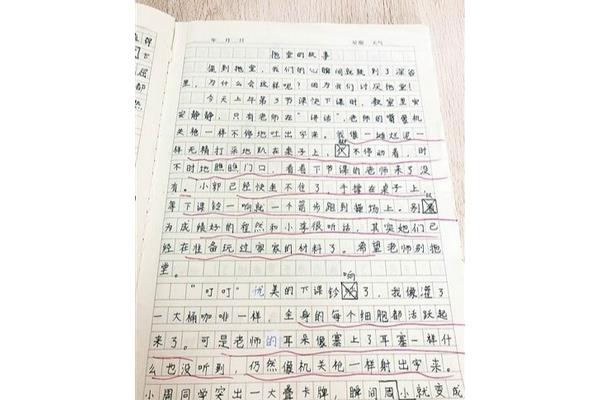 年 月 日 星期 天气
拖堂的故事
一提到拖堂，我们的心瞬间就跌到了深谷
里，为什么会这样呢？因为我们讨厌拖堂！
今天上午第3节课快下课时，教室里安
安静静，只有老师在“讲话”，老师的嘴像机
关枪一样不停地吐出字来。我像一滩烂泥一
样无精打采地趴在桌子上，不停动着，时
不时地瞧瞧门口，看看下节课的老师来了没
有。小郭已经快坐不住了，手撑在桌子上，
等下课铃一响就一个箭步跑到操场上。别
为成绩好的程然和小李很听话，其实她们已
经在准备玩过家家的材料了。希望老师别拖
堂。
“叮叮”优美的下课铃响了，我像灌了
一大桶咖啡一样，全身的每个细胞都活跃起
来了。可是老师的耳朵像塞上了耳塞一样什
么也没听到，仍然像机关枪一样射出字来。
小周同学突出一大叠卡牌，瞬间周小就变成